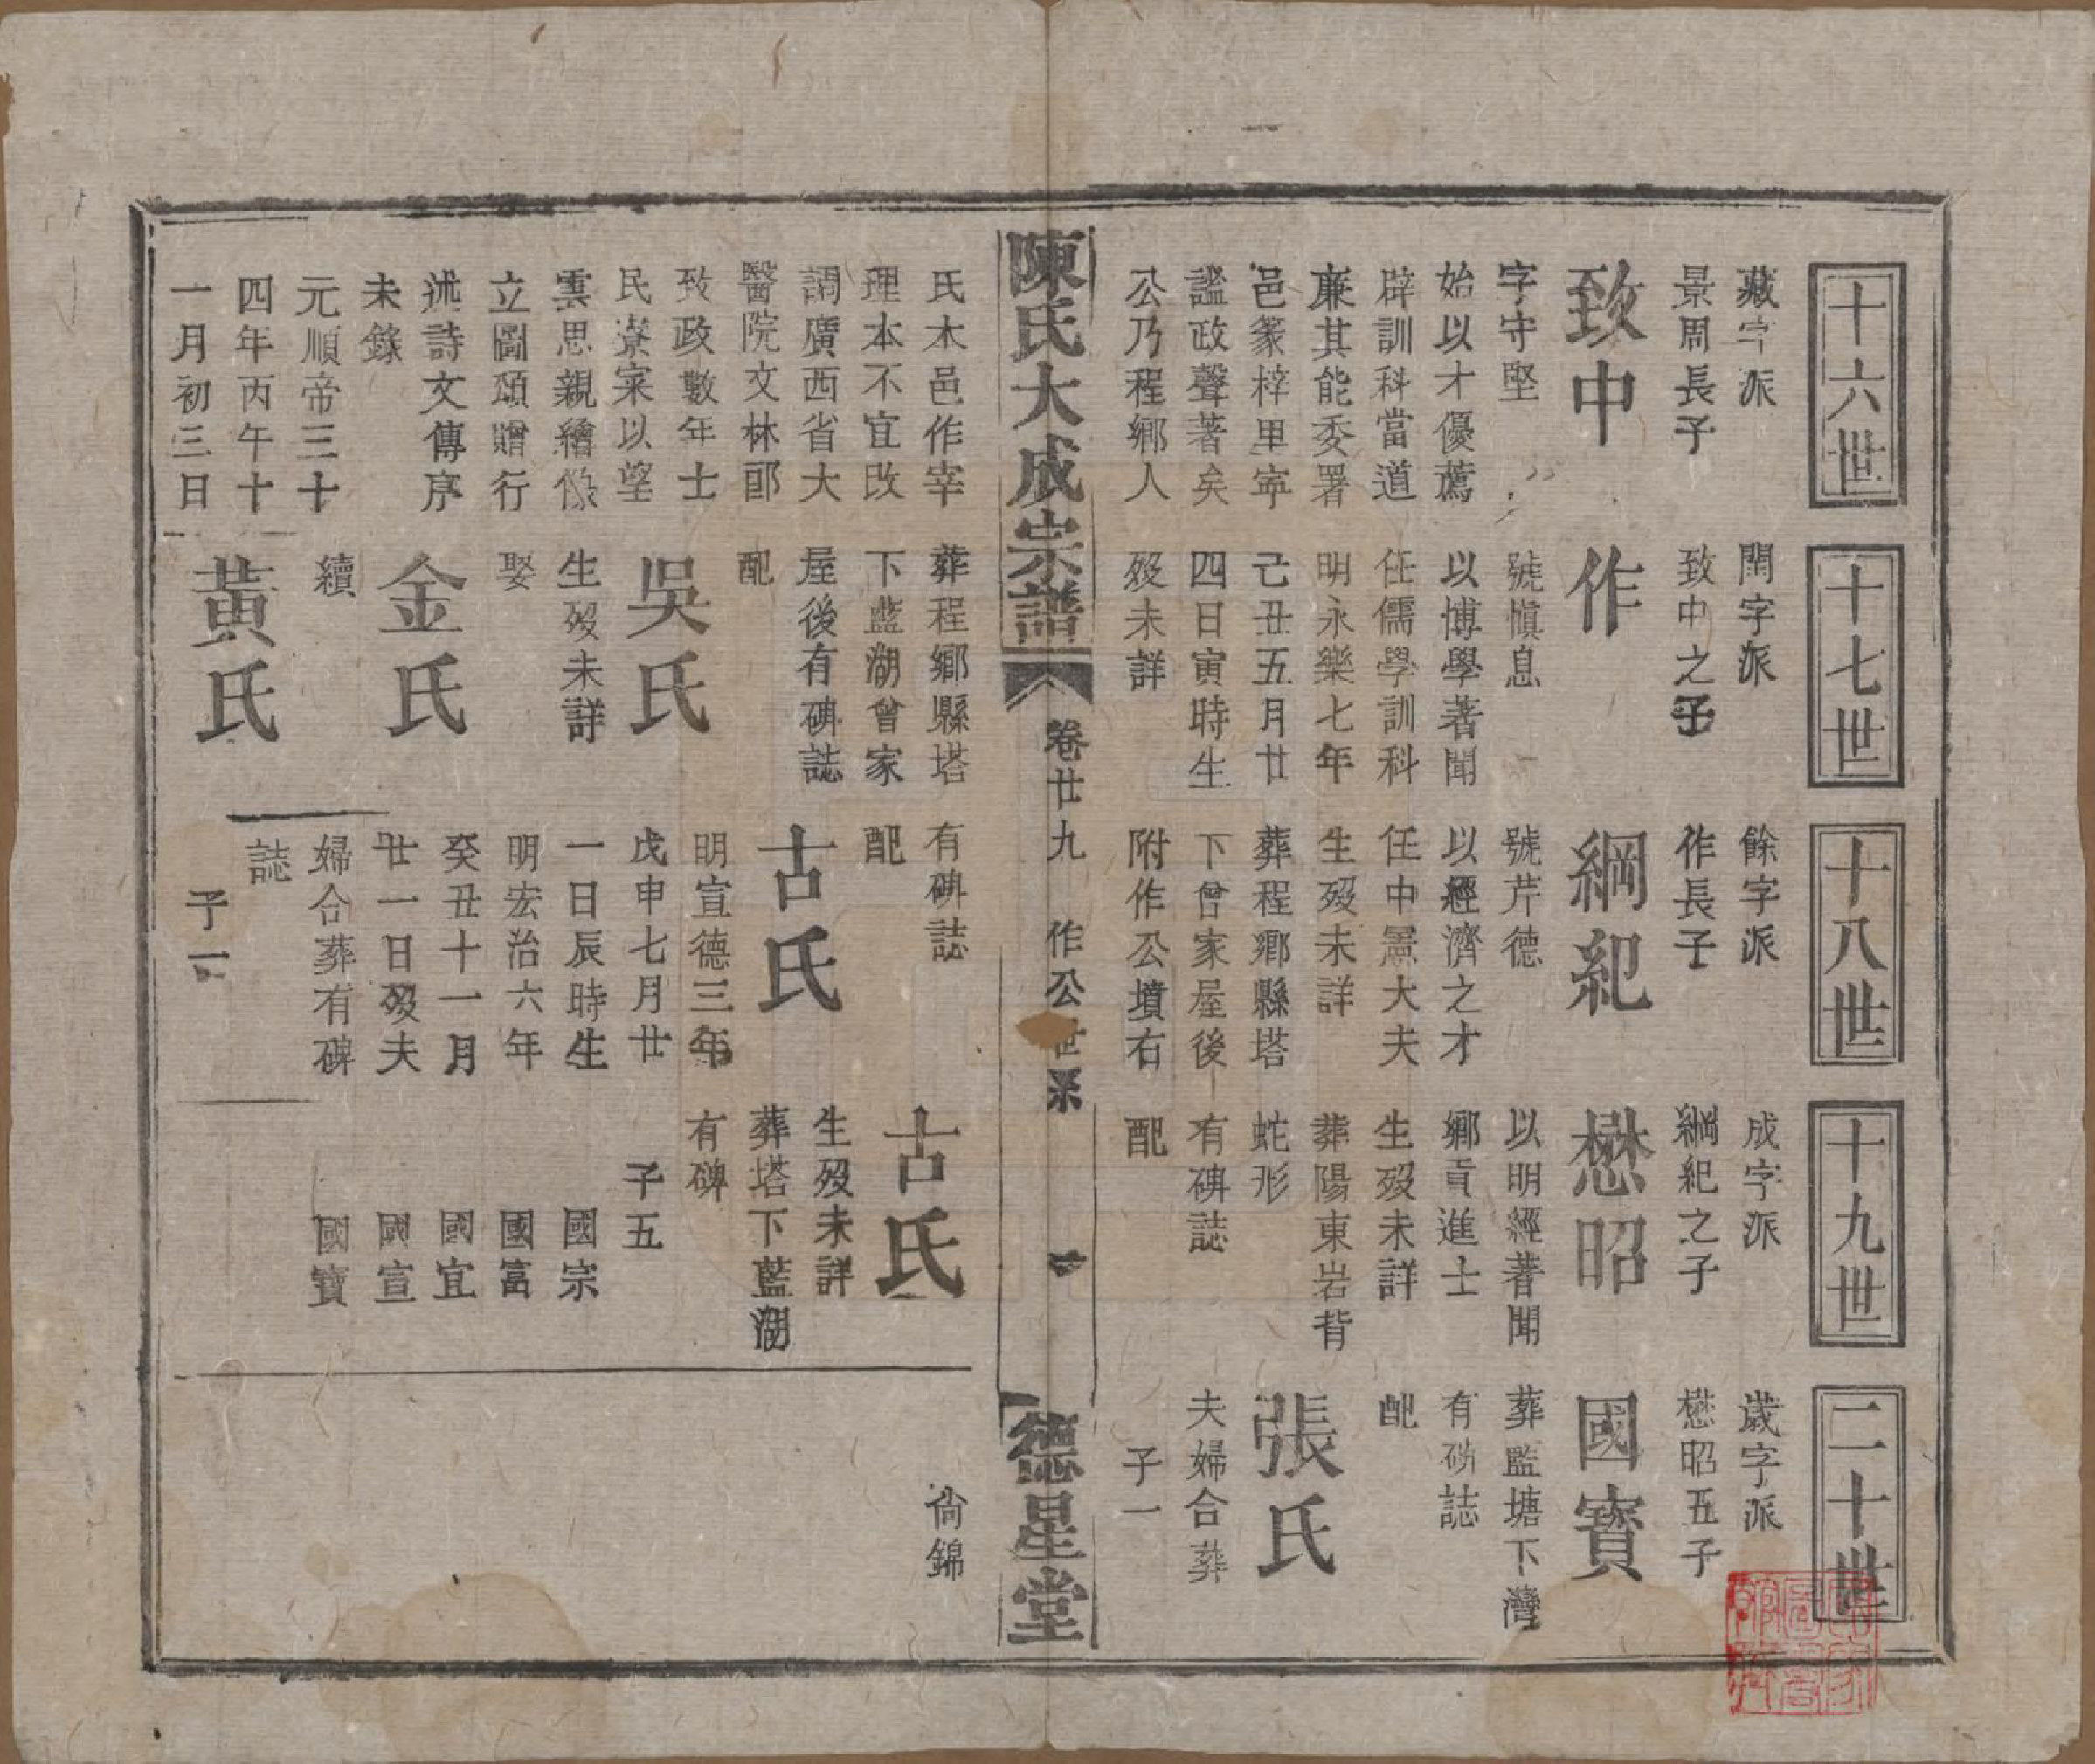 十六世
藏字派
景周長子
致中
字守堅
始以才優薦
辟訓科當道
廉其能委署
邑篆梓里寧
謐政聲著矣
公乃程鄉人
氏木邑作宰
理本不宜改
調廣西省大
醫院文林郎
致政數年士
民寮寀以望
雲思親繪像
立圖頌贈行
述詩文傳序
未錄
元順帝三十
四年丙午十
一月初三日
十七世
閏字派
致中之子
作
號愼息
以博學著聞
任儒學訓科
明永樂七年
己丑五月廿
四日寅時生
歿未詳
葬程鄉縣塔
下藍湖曾家
屋後有碑誌
配
吳氏
生歿未詳
娶
金氏
續
黃氏
十八世
餘字派
作長子
綱紀
號芹德
以經濟之才
任中憲大夫
生歿未詳
葬程鄉縣塔
下曾家屋後
附作公墳右
有碑誌
配
古氏
明宣德三年
戊申七月廿
一日辰時生
明宏治六年
癸丑十一月
廿一日歿夫
婦合葬有碑
誌
子一
十九世
成字派
綱紀之子
懋昭
以明經著聞
鄉貢進士
生歿未詳
葬陽東岩背
蛇形
有碑誌
配
古氏
生歿未詳
葬塔下藍湖
有碑
子五
國宗
國富
國宜
國宣
國寶
二十世
歲字派
懋昭五子
國寶
葬監塘下灣
有碑誌
配
張氏
夫婦合葬
子一
尙錦
陳氏大成宗譜
卷廿九
作公世系
一
德星堂